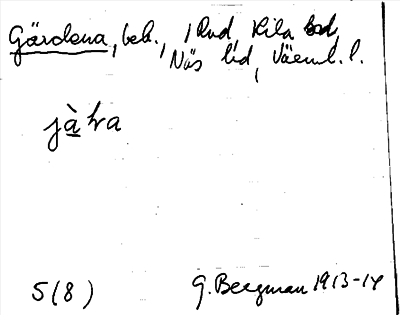 Gärdena, beb., i Rud, Kila sn,
Näs hd, Värml. l.
jàtra
5(8)
G. Bergman 1913-14